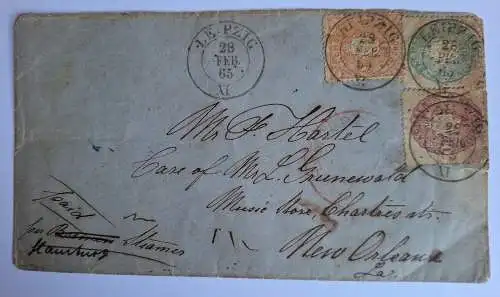 LEIPZIG
28
FEB.
65
XI
LEIPZIG
28
FEB.
LEIPZIG
28
FEB.
LEIPZIG
28
XI
Mr. F. Hartel
Care of Mr L. Grunewald
Music Store, Chartres str.
New Orleans
La.
paid
per Bremen Steamer
Hamburg